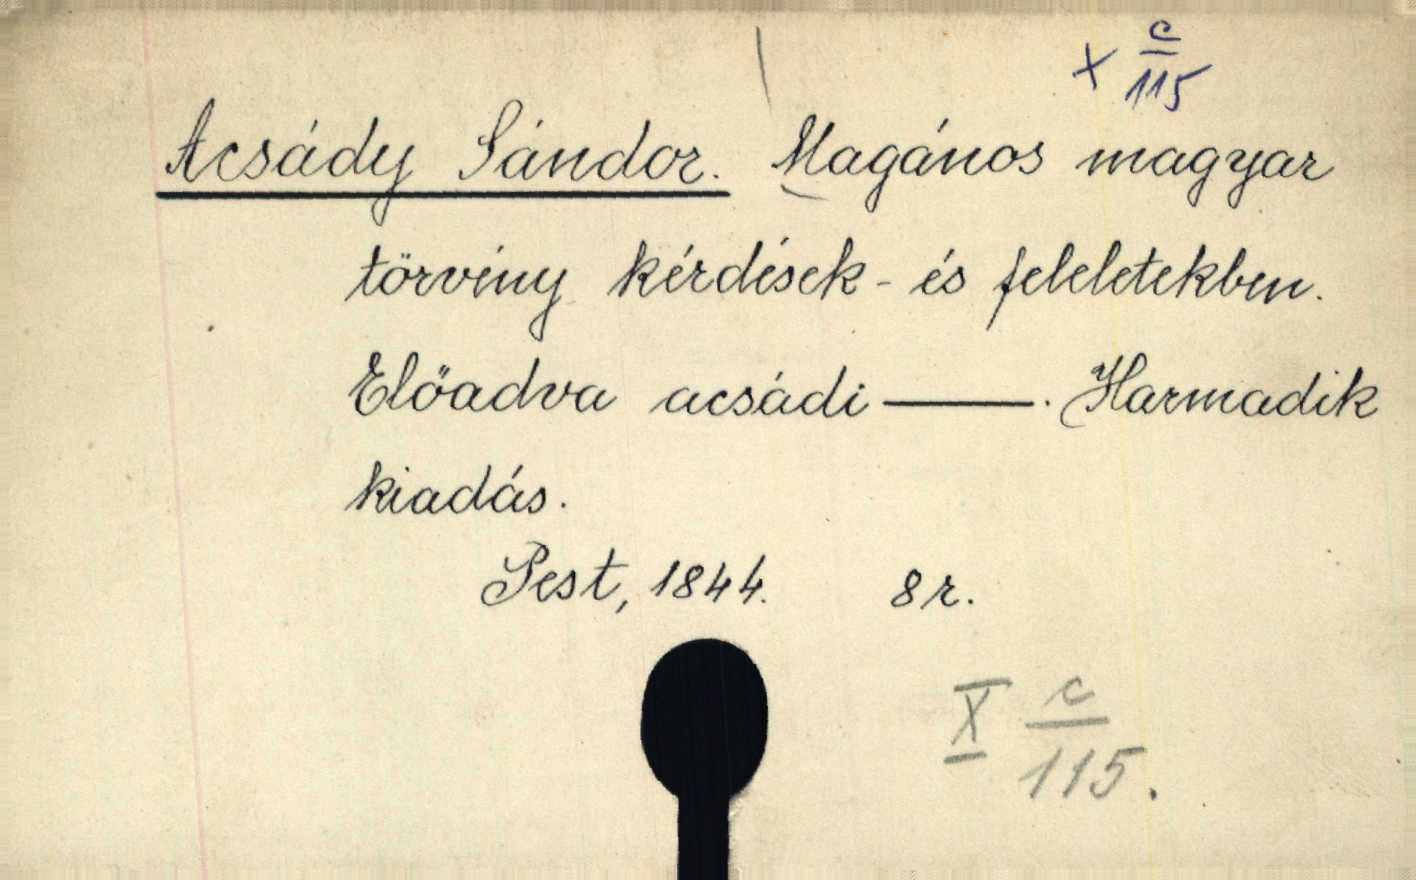 X c/115
Acsády Sándor. Magános magyar
törvény kérdések- és feleletekben.
Előadva acsádi ——. Harmadik
kiadás.
Pest, 1844. 8r.
X c/115.